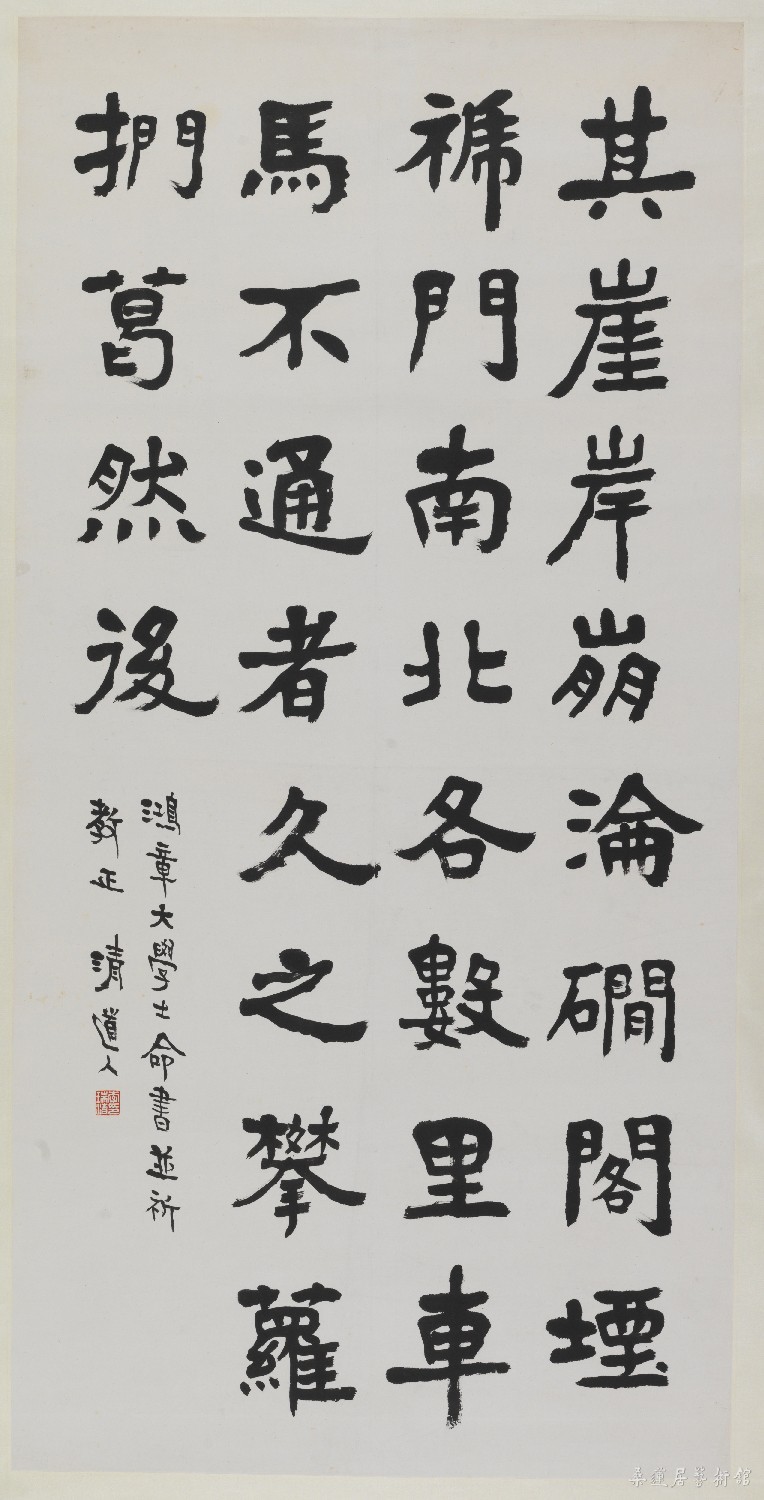 其崖岸崩淪磵閣堙
禠門南北各數里車
馬不通者久之攀蘿
捫葛然後
鴻章大學士命書並祈
教正 清道人
桑蓮居藝術館